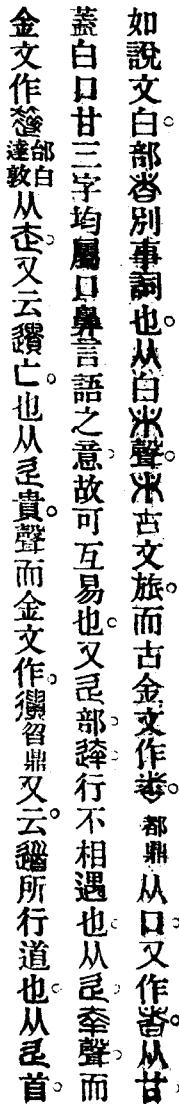 如說文白部者別事詞也从白𣥐聲𣥐古文旅而古金文作者都鼎从口又作者从甘
蓋白口甘三字均屬口鼻言語之意故可互易也又辵部達行不相遇也从辵羍聲而
金文作邰白達敦从又云遺亡也从辵貴聲而金文作遺曶鼎又云道所行道也从辵首